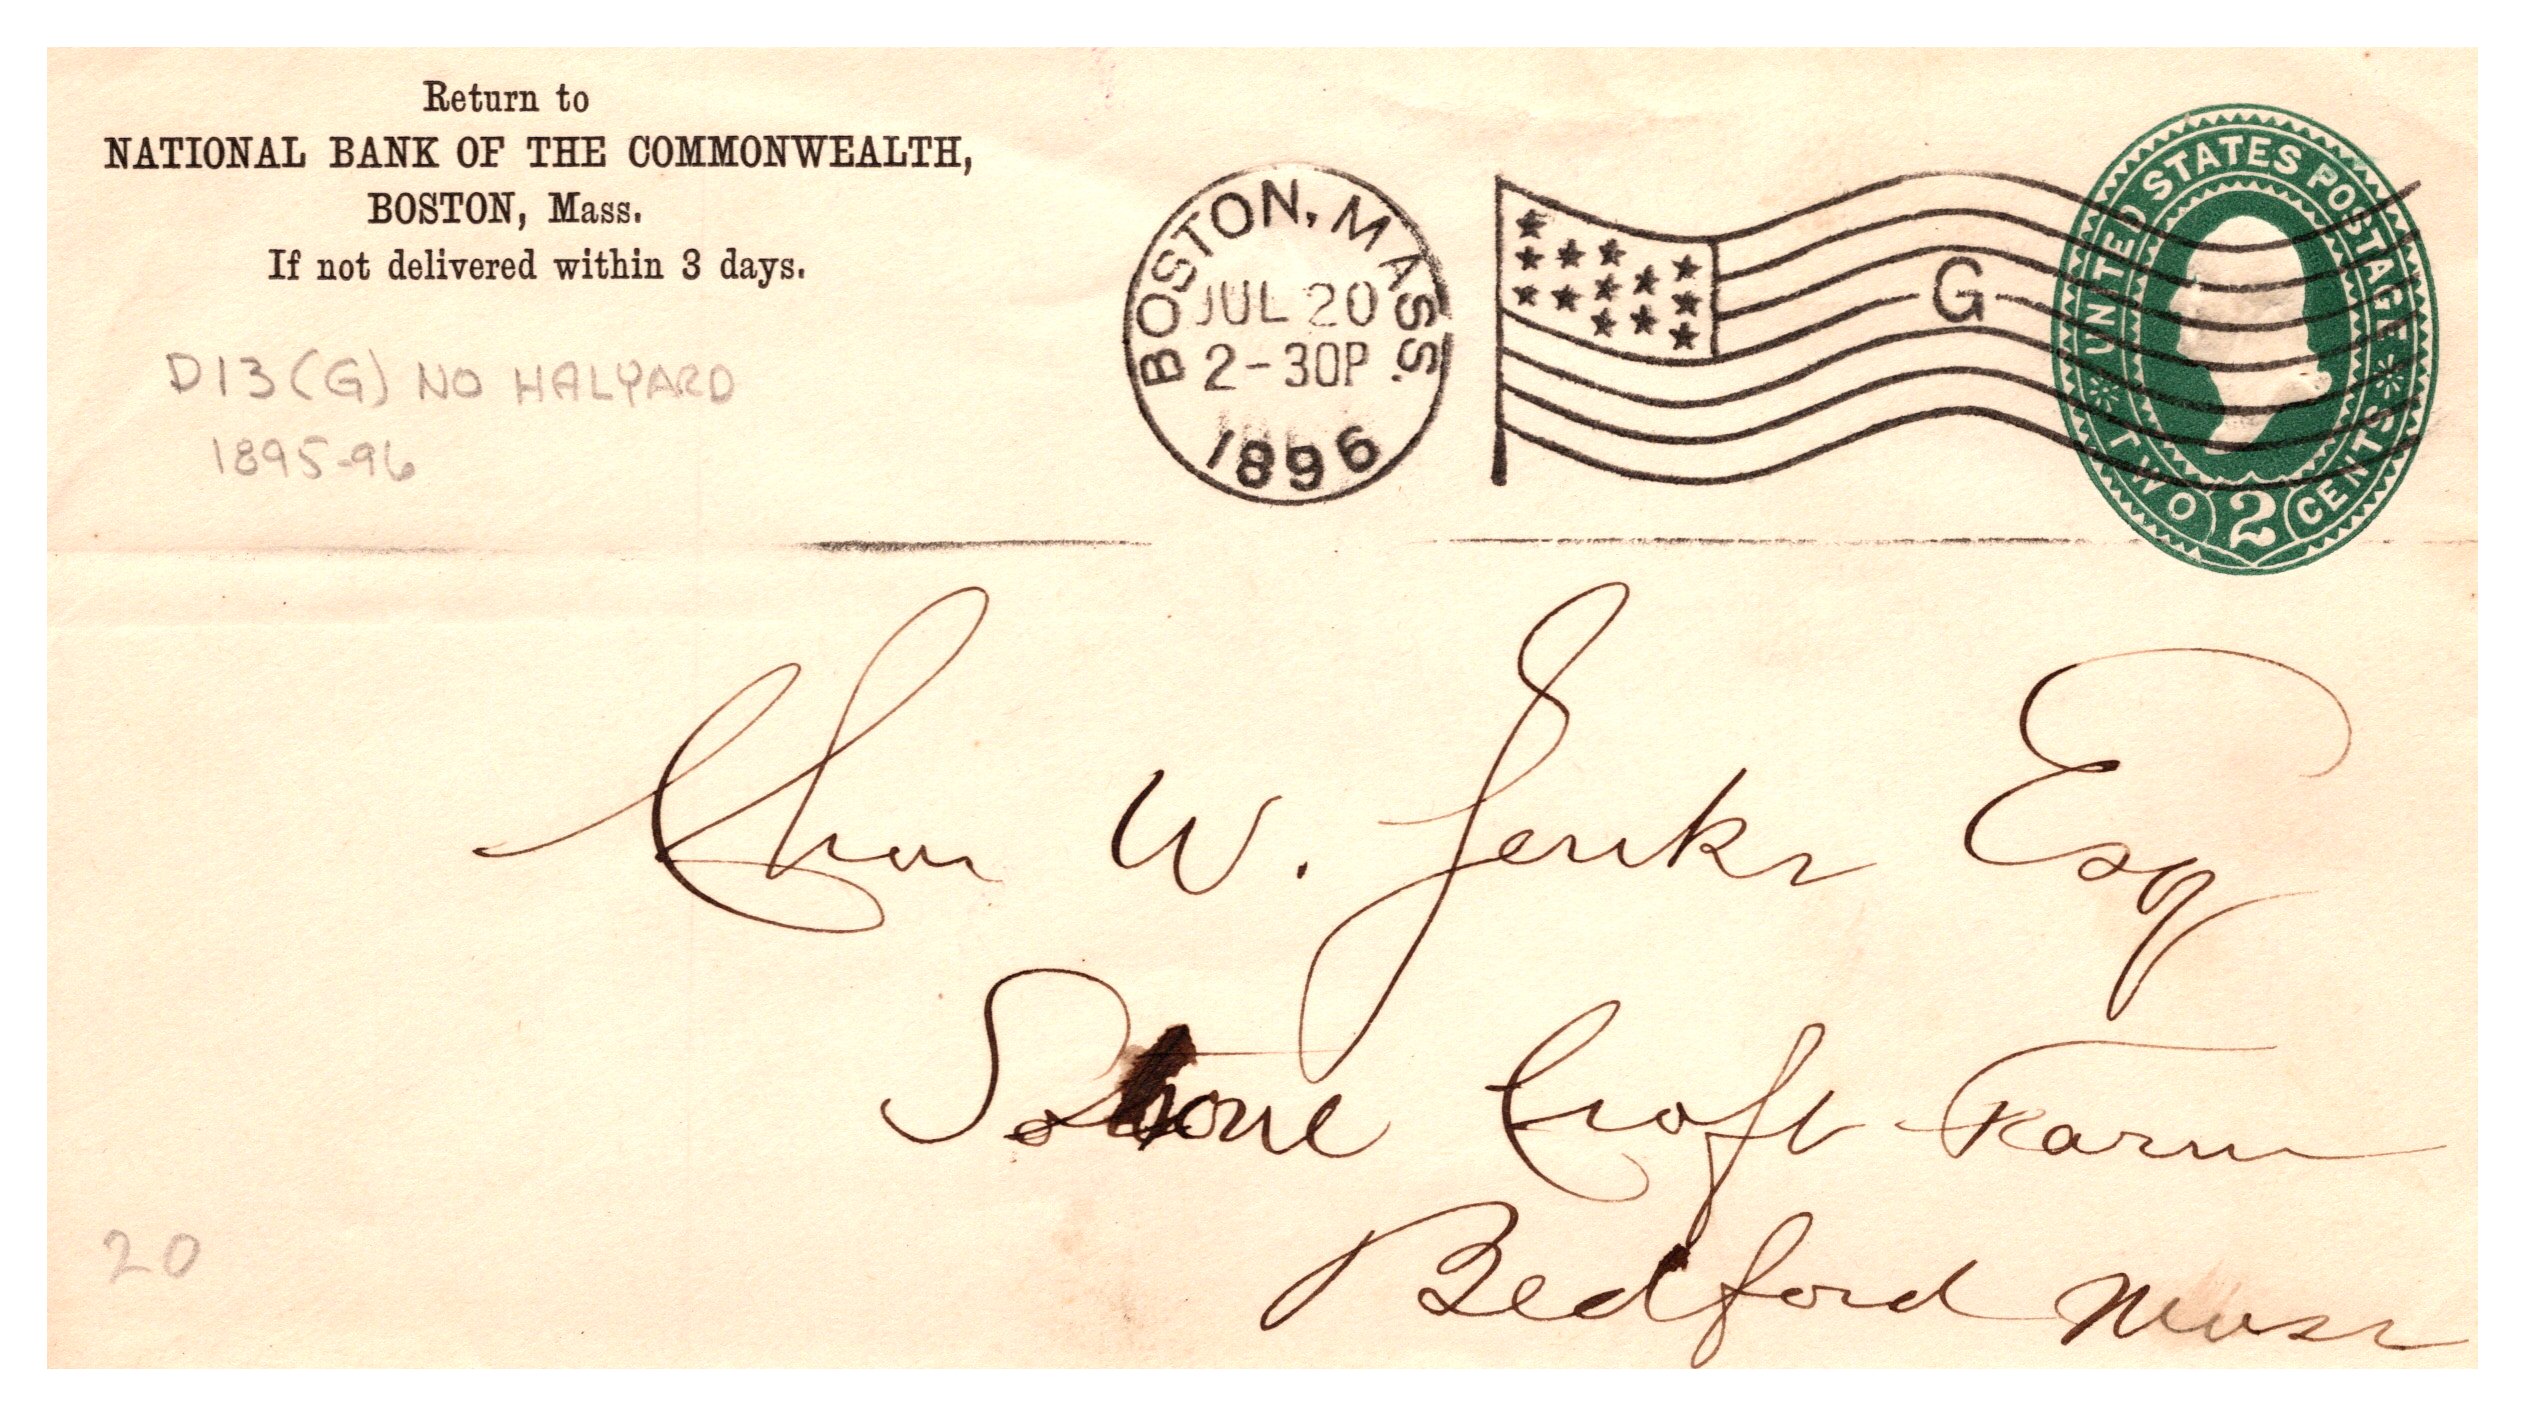 Return to
NATIONAL BANK OF THE COMMONWEALTH,
BOSTON, Mass.
If not delivered within 3 days.
D13(G) NO HALYARD
1895-96
BOSTON, MASS.
JUL 20
2-30P
1896
G
UNITED STATES POSTAGE
TWO 2 CENTS
Chas W. Jenks Esq
Stone Croft Farm
Bedford Mass
20